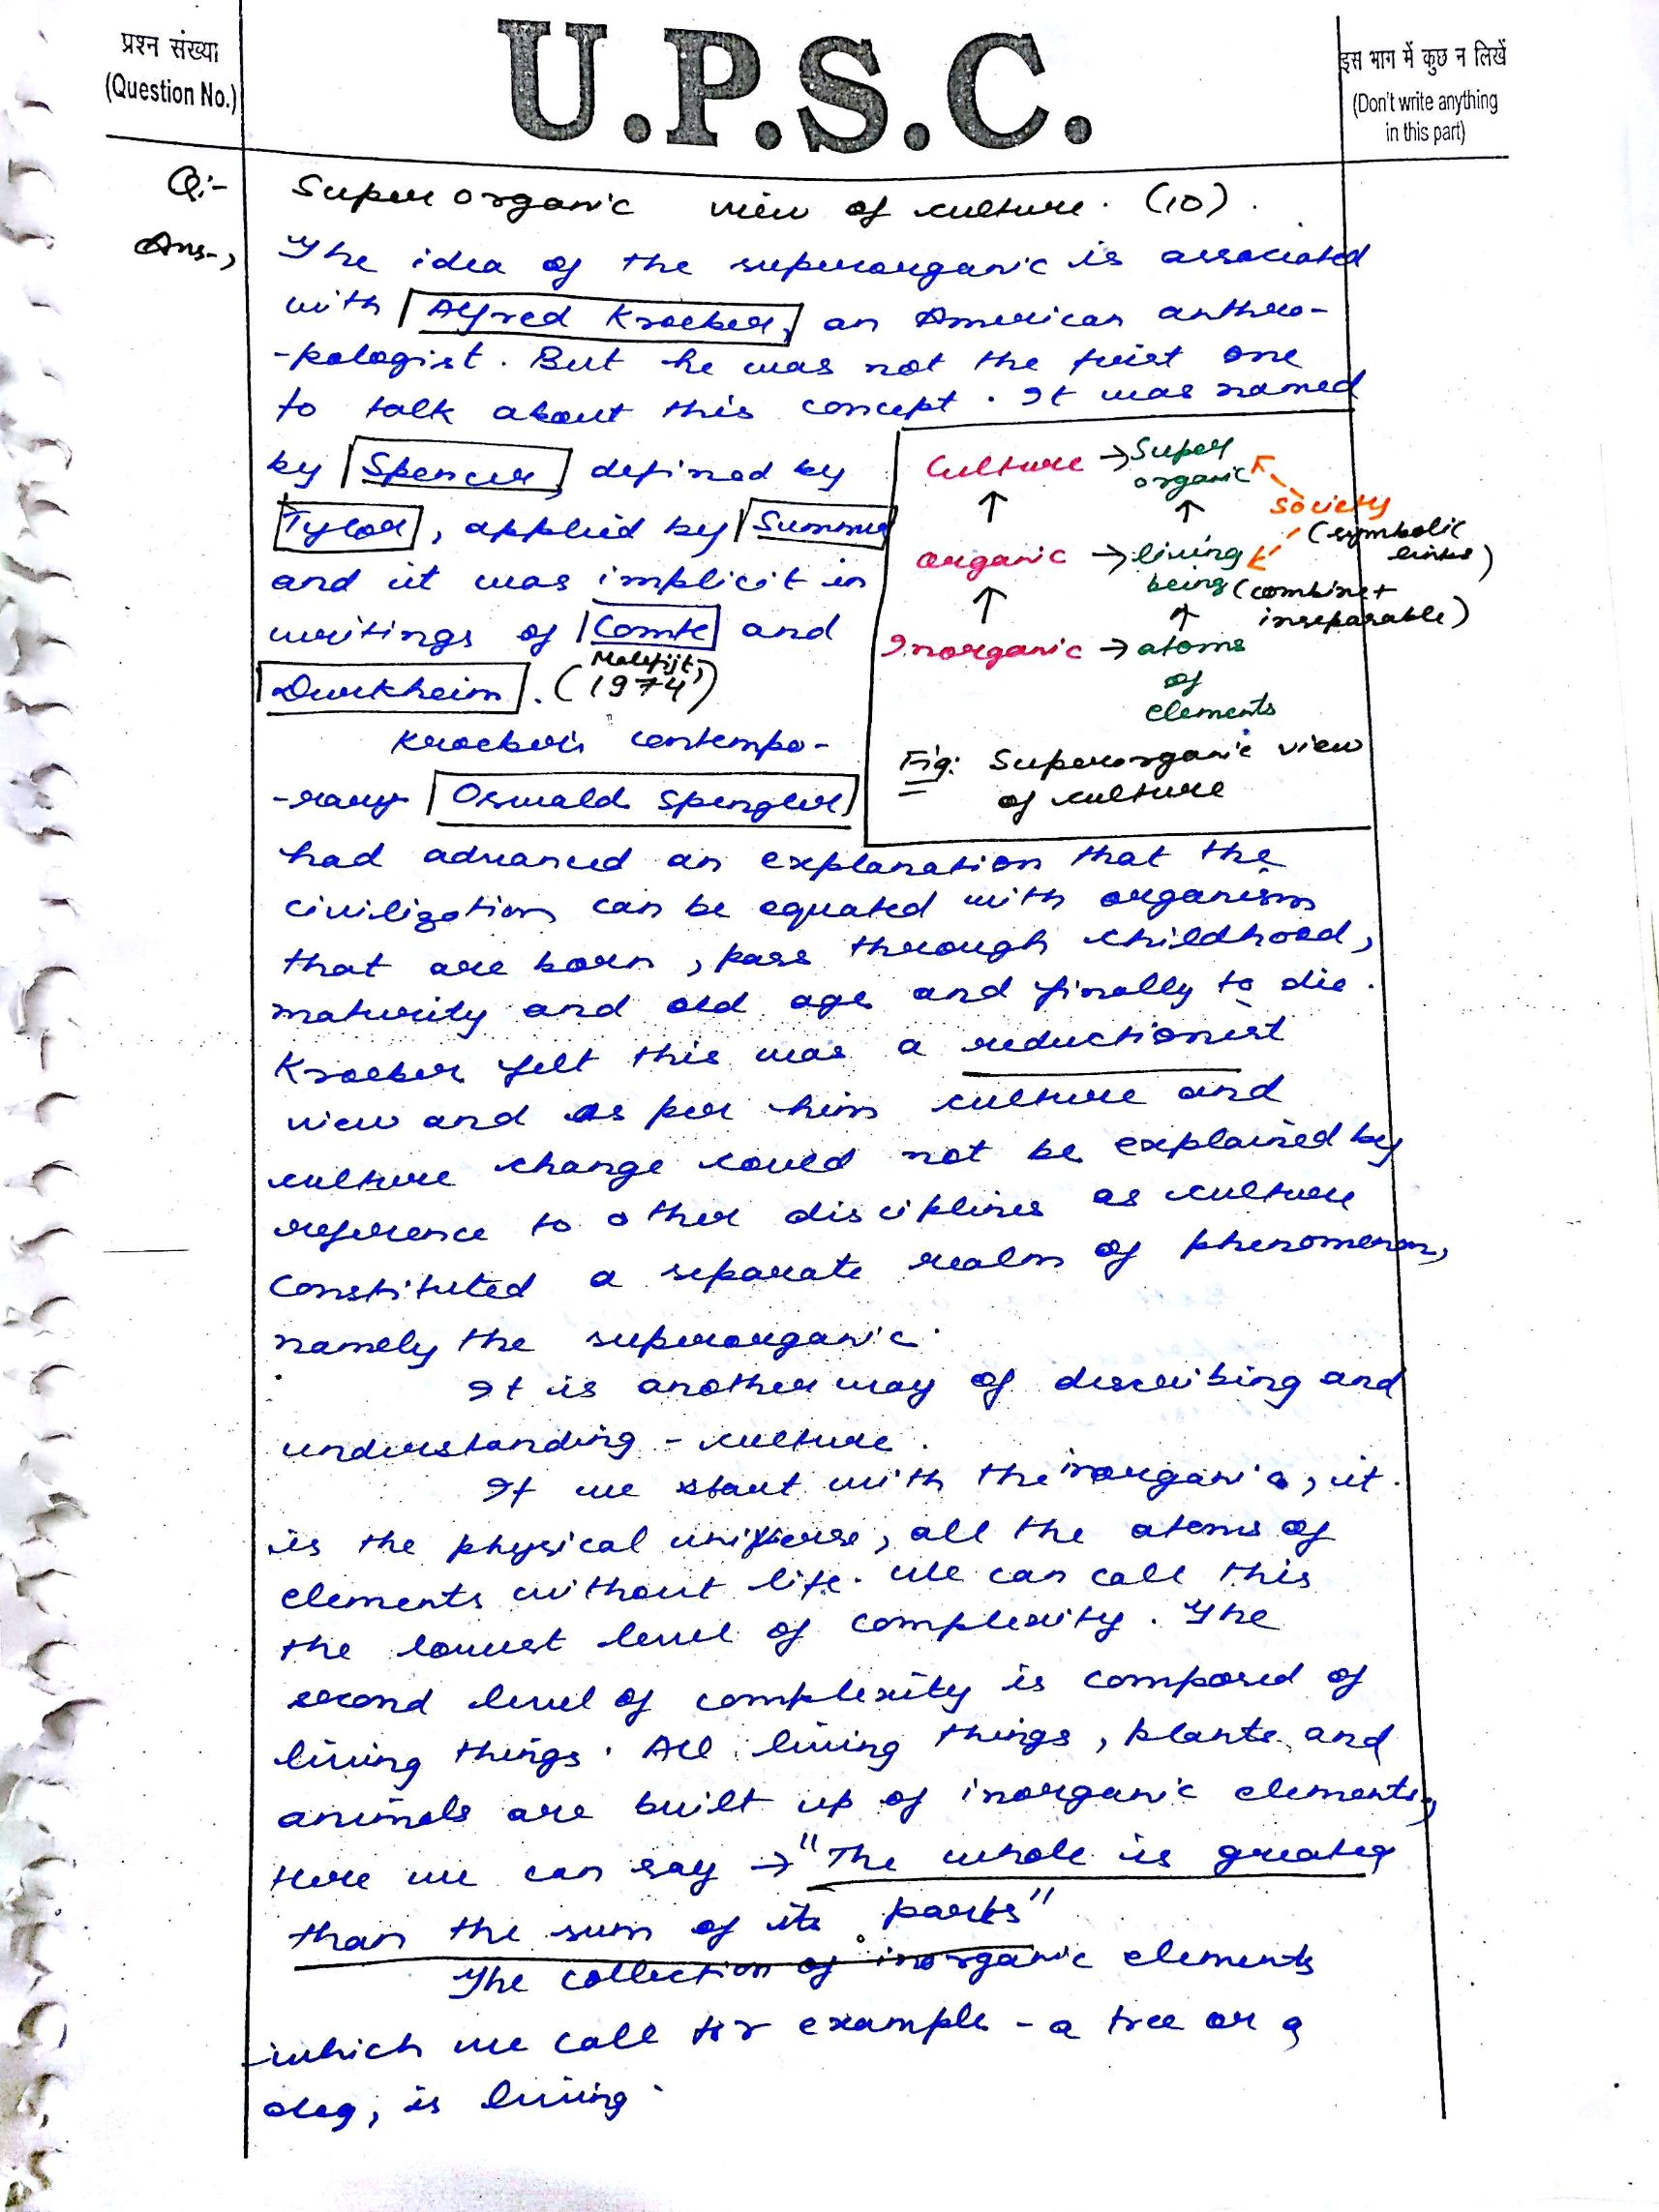 प्रश्न संख्या
(Question No.)
U.P.S.C.
इस भाग में कुछ न लिखें
(Don't write anything
in this part)
Q:- Super organic view of culture. (10).
Ans-, The idea of the superorganic is associated
with Alfred Kroeber, an American anthro-
-pologist. But he was not the first one
to talk about this concept. It was named
by Spencer, defined by
Tylor, applied by Summer
and it was implicit in
writings of Comte and
Durkheim. (Malefijt, 1974)
Culture → Super organic
↑ ↑
society
(symbolic links)
organic → living being (combine + inseparable)
↑ ↑
Inorganic → atoms
of
elements
Fig: Superorganic view
of culture
Kroeber's contempo-
-rary Oswald Spengler
had advanced an explanation that the
civilization can be equated with organism
that are born, pass through childhood,
maturity and old age and finally to die.
Kroeber felt this was a reductionist
view and as per him culture and
culture change could not be explained by
reference to other disciplines as culture
constituted a separate realm of phenomenon,
namely the superorganic.
It is another way of describing and
understanding - culture.
If we start with the inorganic, it
is the physical universe, all the atoms of
elements without life. We can call this
the lowest level of complexity. The
second level of complexity is composed of
living things. All living things, plants and
animals are built up of inorganic elements,
Here we can say → "The whole is greater
than the sum of its parts"
The collection of inorganic elements
which we call for example - a tree or a
dog, is living.